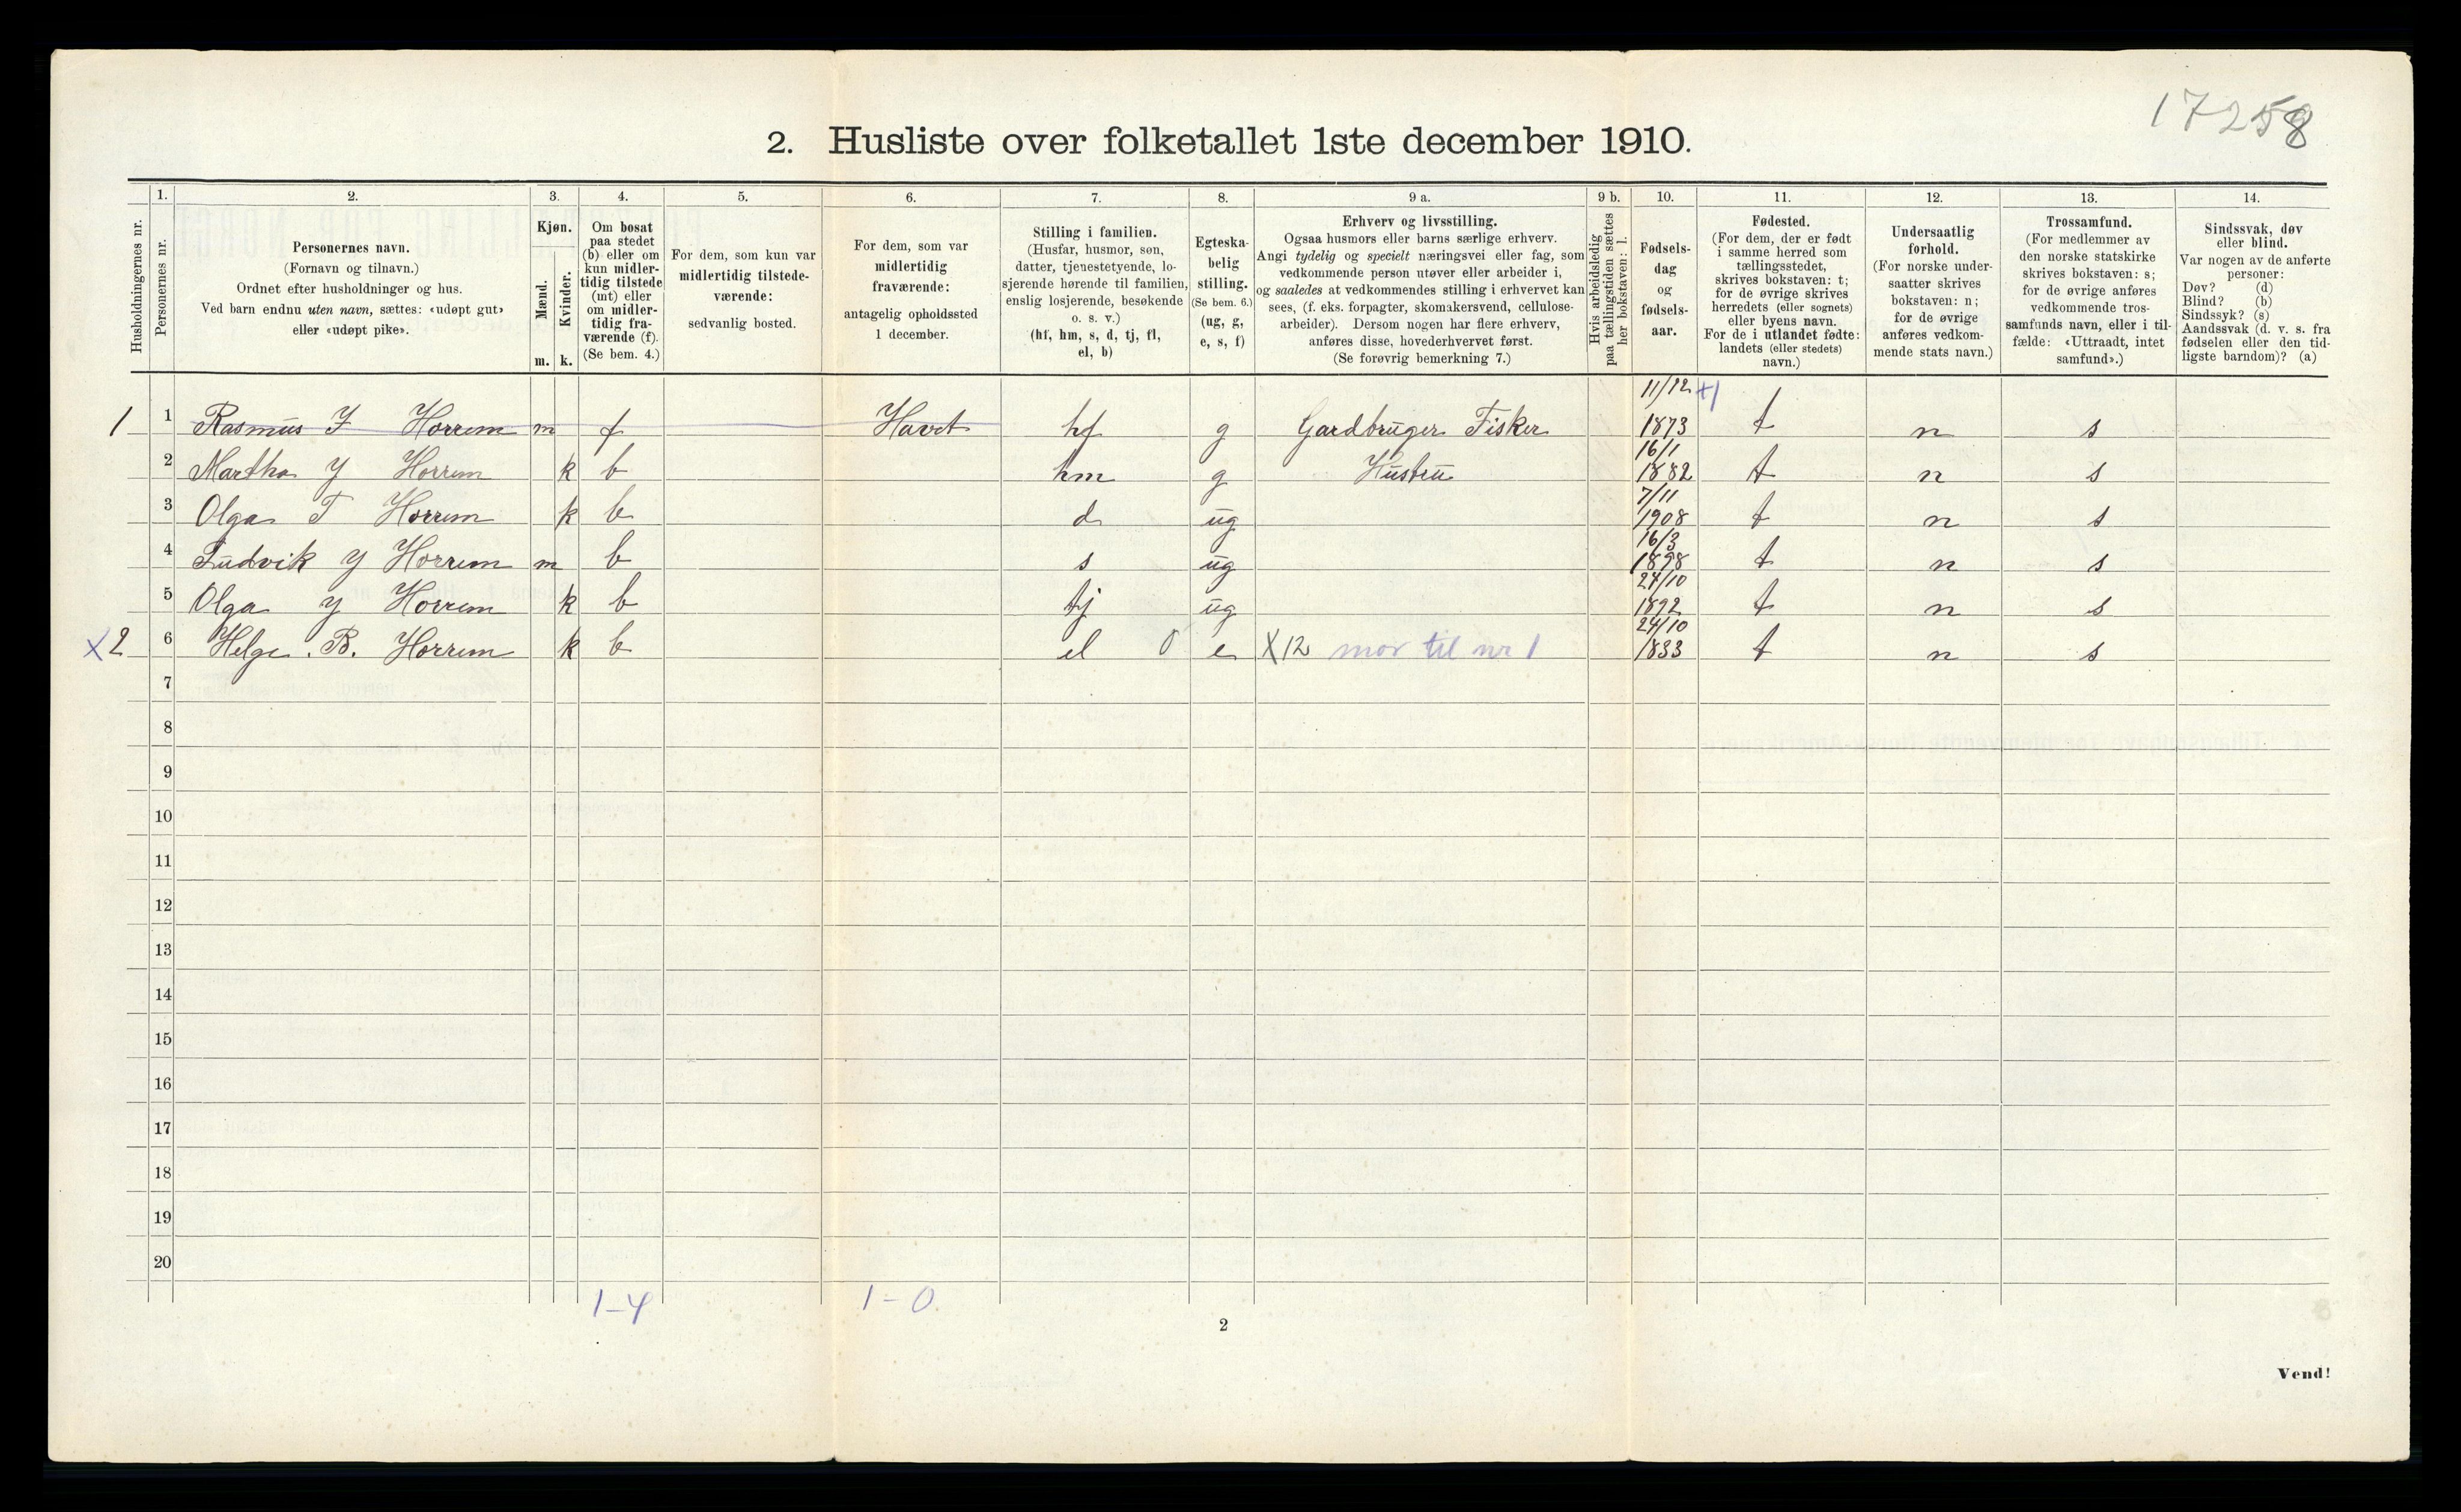 17258
2. Husliste over folketallet 1ste december 1910.
Husholdningernes nr.
1.
Personernes nr.
2.
Personernes navn.
(Fornavn og tilnavn.)
Ordnet efter husholdninger og hus.
Ved barn endnu uten navn, sættes: «udøpt gut»
eller «udøpt pike».
3.
Kjøn.
Mænd.
m.
Kvinder.
k.
4.
Om bosat
paa stedet
(b) eller om
kun midler-
tidig tilstede
(mt) eller
om midler-
tidig fra-
værende (f).
(Se bem. 4.)
5.
For dem, som kun var
midlertidig tilstede-
værende:
sedvanlig bosted.
6.
For dem, som var
midlertidig
fraværende:
antagelig opholdssted
1 december.
7.
Stilling i familien.
(Husfar, husmor, søn,
datter, tjenestetyende, lo-
sjerende hørende til familien,
enslig losjerende, besøkende
o. s. v.)
(hf, hm, s, d, tj, fl,
el, b)
8.
Egteska-
belig
stilling.
(Se bem. 6.)
(ug, g,
e, s, f)
9 a.
Erhverv og livsstilling.
Ogsaa husmors eller barns særlige erhverv.
Angi tydelig og specielt næringsvei eller fag, som
vedkommende person utøver eller arbeider i,
og saaledes at vedkommendes stilling i erhvervet kan
sees, (f. eks. forpagter, skomakersvend, cellulose-
arbeider). Dersom nogen har flere erhverv,
anføres disse, hovederhvervet først.
(Se forøvrig bemerkning 7.)
9 b.
Hvis arbeidsledig
paa tællingstiden sættes
her bokstaven: l.
10.
Fødsels-
dag
og
fødsels-
aar.
11.
Fødested.
(For dem, der er født
i samme herred som
tællingsstedet,
skrives bokstaven: t;
for de øvrige skrives
herredets (eller sognets)
eller byens navn.
For de i utlandet fødte:
landets (eller stedets)
navn.)
12.
Undersaatlig
forhold.
(For norske under-
saatter skrives
bokstaven: n;
for de øvrige
anføres vedkom-
mende stats navn.)
13.
Trossamfund.
(For medlemmer av
den norske statskirke
skrives bokstaven: s;
for de øvrige anføres
vedkommende tros-
samfunds navn, eller i til-
fælde: «Uttraadt, intet
samfund».)
14.
Sindssvak, døv
eller blind.
Var nogen av de anførte
personer:
Døv? (d)
Blind? (b)
Sindssyk? (s)
Aandssvak (d. v. s. fra
fødselen eller den tid-
ligste barndom)? (a)
1 1 Rasmus Horrem m f Havet hf g Gardbruger Fisker 11/12 1873 t n s
2 Martha Horrem k b hm g Hustru 16/1 1882 t n s
3 Olga T Horrem k b d ug 7/11 1908 t n s
4 Ludvik Horrem m b s ug 16/3 1898 t n s
5 Olga Horrem k b tj ug 1892 t n s
X2 6 Helge. B. Horrem k b el 0 e X12 mor til nr 1 24/10 1833 t n s
7
8
9
10
11
12
13
14
15
16
17
18
19
20
1-4 1-0
2
Vend!